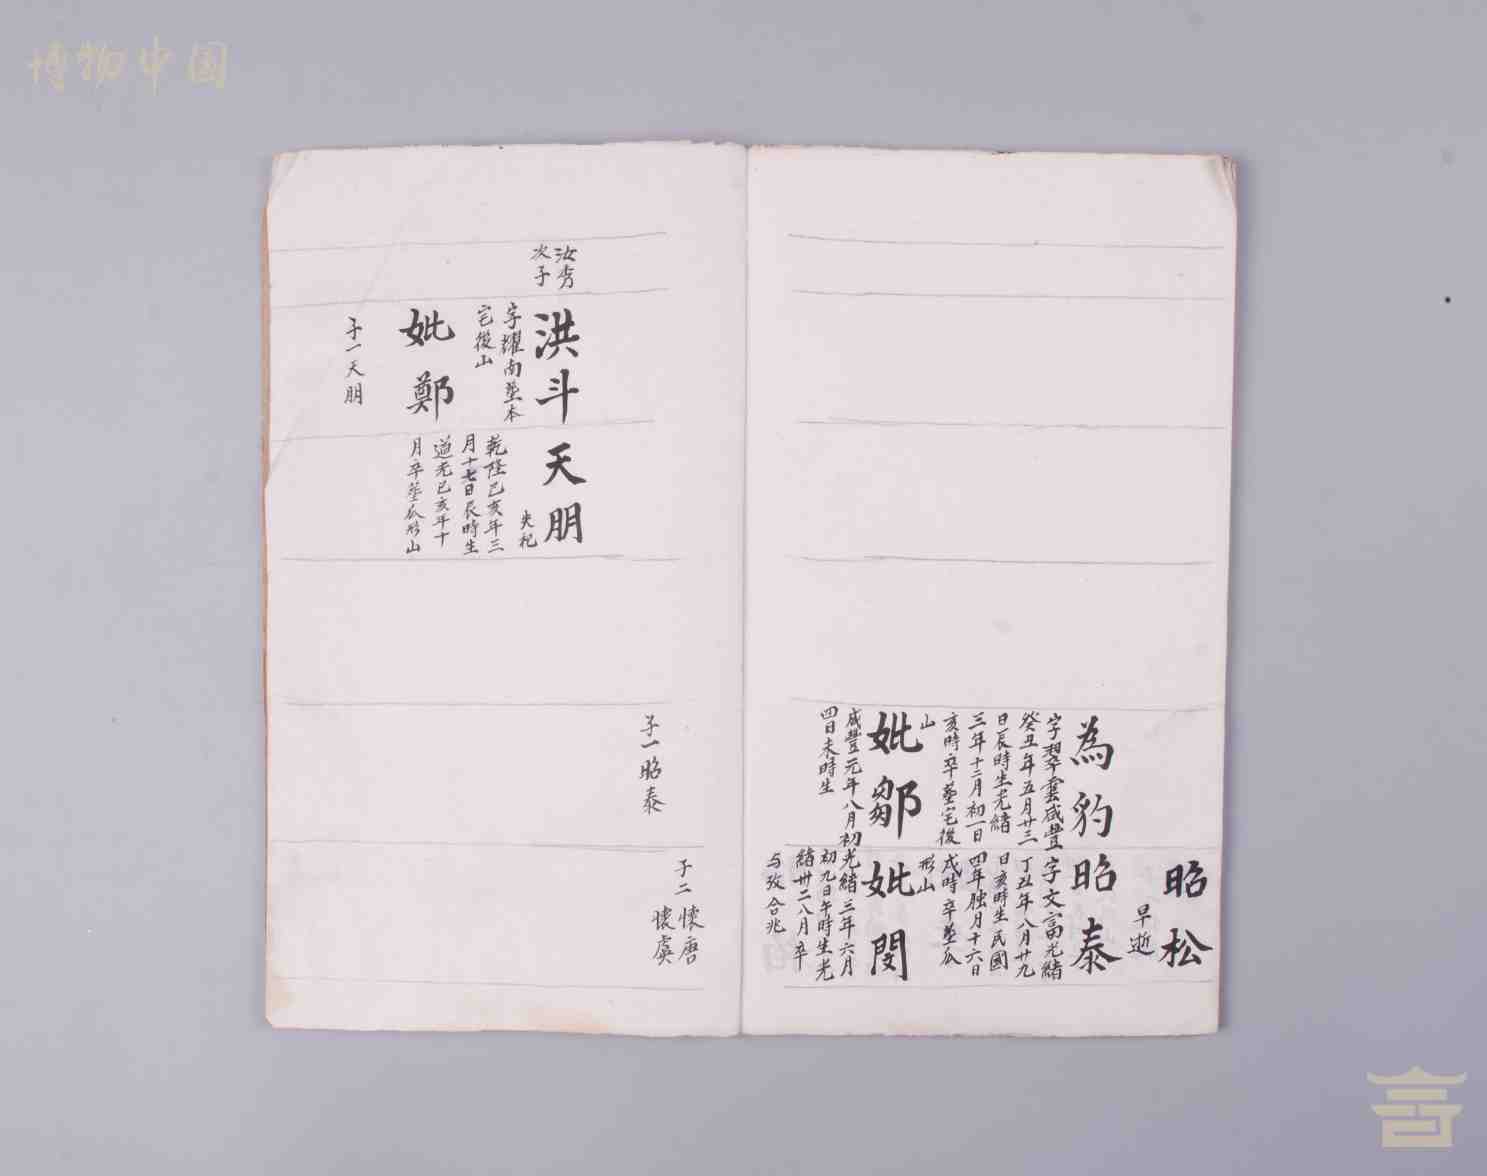 博物中国
昭松
早逝
為豹
字翠雲咸豐
癸丑年五月廿三
日辰時生光緒
三年十二月初一日
亥時卒塟宅後
山
妣鄒
咸豐元年八月初
四日未時生
昭泰
字文富光緒
丁丑年八月廿九
日亥時生民國
四年臘月十六日
戌時卒塟瓜
形山
妣閔
光緒三年六月
初九日午時生光
緒卅二八月卒
与孜合兆
子二懷唐
懷虞
子一昭泰
汝秀
次子
洪斗
字耀南塟本
宅後山
妣鄭
乾隆己亥年三
月十七日辰時生
道光己亥年十
月卒塟瓜形山
子一天朋
天朋
失祀